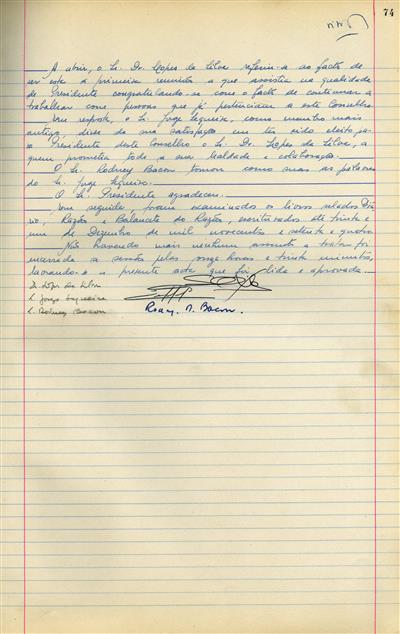 74
A abrir, o Sr. Dr. Lopes da Silva referiu-se ao facto de
ser esta a primeira reunião a que assistia na qualidade
de Presidente congratulando-se com o facto de continuar a
trabalhar com pessoas que já pertenciam a este Conselho.
Em resposta, o Sr. Jorge Siqueira, como membro mais
antigo, disse da sua satisfação em ter sido eleito pa-
ra Presidente deste Conselho o Sr. Dr. Lopes da Silva, a
quem prometeu toda a sua lealdade e colaboração.
O Sr. Rodney Bacon tomou como suas as palavras
do Sr. Jorge Siqueira.
O Sr. Presidente agradeceu.
Em seguida foram examinados os livros selados Diá-
rio, Razão e Balancete do Razão, escriturados até trinta e
um de Dezembro de mil novecentos e setenta e quatro.
Não havendo mais nenhum assunto a tratar foi
encerrada a sessão pelas onze horas e trinta minutos,
lavrando-se a presente acta que foi lida e aprovada.
Dr. Lopes da Silva
Sr. Jorge Siqueira
Sr. Rodney Bacon
Rodney N. Bacon